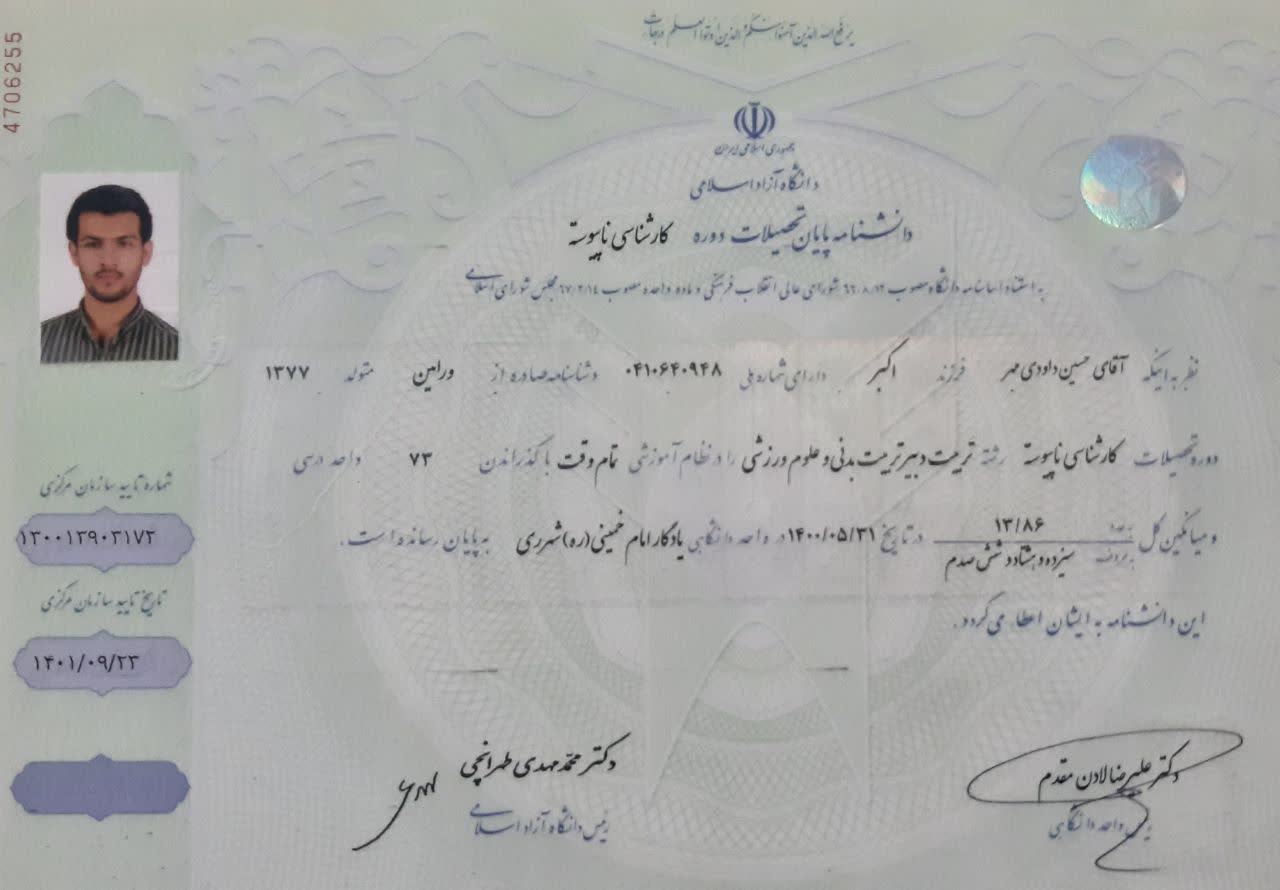 4706255
یرفع الله الذین آمنوا منکم و الذین اوتوا العلم درجات
جمهوری اسلامی ایران
دانشگاه آزاد اسلامی
دانشنامه پایان تحصیلات دوره کارشناسی ناپیوسته
به استناد اساسنامه دانشگاه مصوب ۶۶/۸/۱۲ شورای عالی انقلاب فرهنگی و ماده واحده مصوب ۶۷/۲/۱۴ مجلس شورای اسلامی
نظر به اینکه آقای حسین داودی مهر فرزند اکبر دارای شماره ملی ۰۴۱۰۶۴۰۹۴۸ و شناسنامه صادره از ورامین متولد ۱۳۷۷
دوره تحصیلات کارشناسی ناپیوسته رشته تربیت دبیر تربیت بدنی و علوم ورزشی را در نظام آموزشی تمام وقت با گذراندن ۷۳ واحد درسی
و میانگین کل به عدد ۱۳/۸۶ به حروف سیزده و هشتاد و شش صدم در تاریخ ۱۴۰۰/۰۵/۳۱ در واحد دانشگاهی یادگار امام خمینی (ره) شهرری به پایان رسانده است.
این دانشنامه به ایشان اعطاء می گردد.
شماره تایید سازمان مرکزی
۱۳۰۰۱۳۹۰۳۱۷۳
تاریخ تایید سازمان مرکزی
۱۴۰۱/۰۹/۲۳
دکتر علیرضا لادن مقدم
رئیس واحد دانشگاهی
دکتر محمد مهدی طهرانچی
رئیس دانشگاه آزاد اسلامی